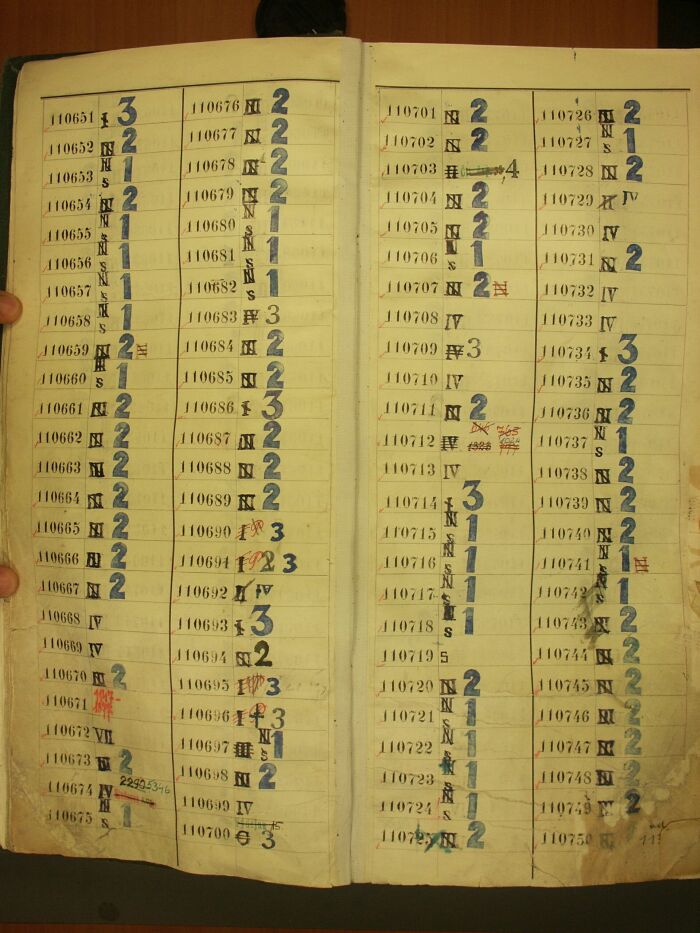 110651 I 3
110652 N 2
110653 N s 1
110654 N 2
110655 N s 1
110656 N s 1
110657 N s 1
110658 N s 1
110659 N 2
110660 N s 1
110661 N 2
110662 N 2
110663 N 2
110664 N 2
110665 N 2
110666 N 2
110667 N 2
110668 IV
110669 IV
110670 N 2
110671
110672 VII
110673 2
110674 IV
110675 N s 1
110676 N 2
110677 N 2
110678 N 2
110679 N 2
110680 N s 1
110681 N s 1
110682 N s 1
110683 IV 3
110684 N 2
110685 N 2
110686 I 3
110687 N 2
110688 N 2
110689 N 2
110690 I 3
110691 I 2 3
110692 II IV
110693 I 3
110694 N 2
110695 I 3
110696 I 3
110697 III N s 1
110698 N 2
110699 IV
110700 3
110701 N 2
110702 N 2
110703 II 4
110704 N 2
110705 N 2
110706 N s 1
110707 N 2
110708 IV
110709 IV 3
110710 IV
110711 N 2
110712 IV
110713 IV
110714 I 3
110715 N s 1
110716 N s 1
110717 N s 1
110718 N s 1
110719 s
110720 N 2
110721 N s 1
110722 N s 1
110723 N s 1
110724 N s 1
110725 N 2
110726 N 2
110727 N s 1
110728 N 2
110729 II IV
110730 IV
110731 N 2
110732 IV
110733 IV
110734 I 3
110735 N 2
110736 N 2
110737 N s 1
110738 N 2
110739 N 2
110740 N 2
110741 N s 1
110742 N s 1
110743 N 2
110744 N 2
110745 N 2
110746 N 2
110747 N 2
110748 N 2
110749 N 2
110750 N